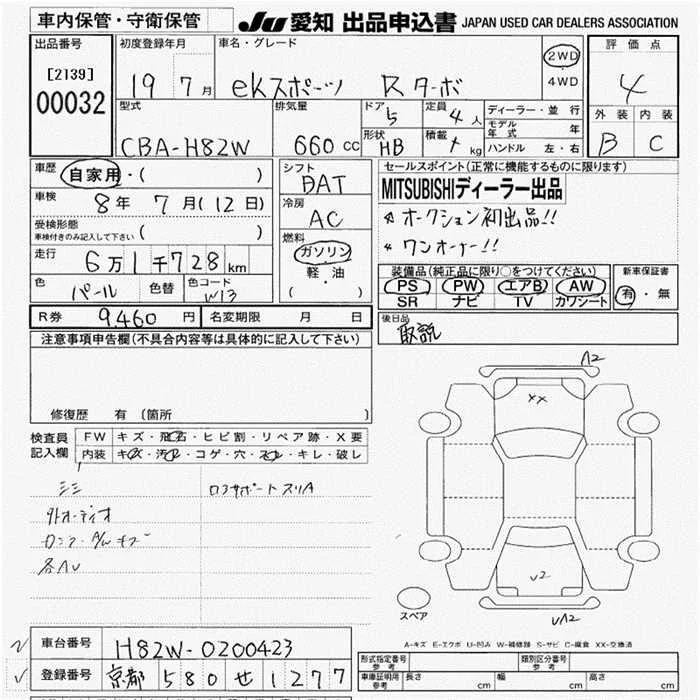 車内保管・守衛保管 JU 愛知 出品申込書 JAPAN USED CAR DEALERS ASSOCIATION
出品番号 初度登録年月 車名・グレード 評価点
[2139] 00032 19 7月 ekスポーツ Rターボ 2WD・4WD 4
型式 排気量 ドア 5 定員 4人 ディーラー・並行 外装 内装
CBA-H82W 660cc 形状 HB 積載 kg モデル年式 年 B C
ハンドル 左・右
車歴 自家用・( ) シフト セールスポイント(正常に機能するものに限ります)
車検 8年 7月(12日) DAT MITSUBISHIディーラー出品
受検形態 車検付きのみ記入して下さい ( ) 冷房 AC オークション初出品!!
走行 6万1千728km 燃料 ガソリン・軽油 ( ) ワンオーナー!!
色 パール 色替 色コード W13 装備品(純正品に限り○をつけてください) 新車保証書
PS PW エアB AW 有・無
SR ナビ TV カワシート
R券 9,460円 名変期限 月 日 後日品
取説
注意事項申告欄(不具合内容等は具体的に記入して下さい)
修復歴 有 (箇所 )
検査員記入欄 FW キズ・飛石・ヒビ割・リペア跡・X要
内装 キズ・汚れ・コゲ・穴・スレ・キレ・破レ
A2
XX
外オーディオ
各AU
U2
UA2
スペア
A-キズ E-エクボ U-凹み W-補修跡 S-サビ C-腐食 XX-交換済
車台番号 H82W-0200423
登録番号 京都 580 せ 1277
形式指定番号 参考 類別区分番号 参考
車庫証明用 参考 長さ cm 幅 cm 高さ cm